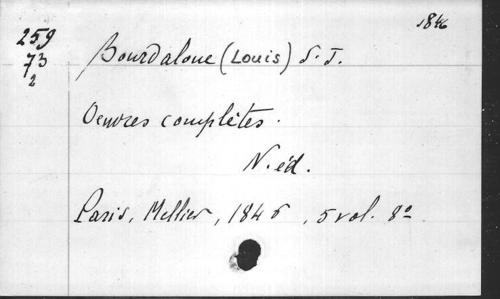 1846
259
73
2
Bourdaloue (Louis) S. J.
Oeuvres complètes.
N. éd.
Paris, Mellier, 1846, 5 vol. 8º